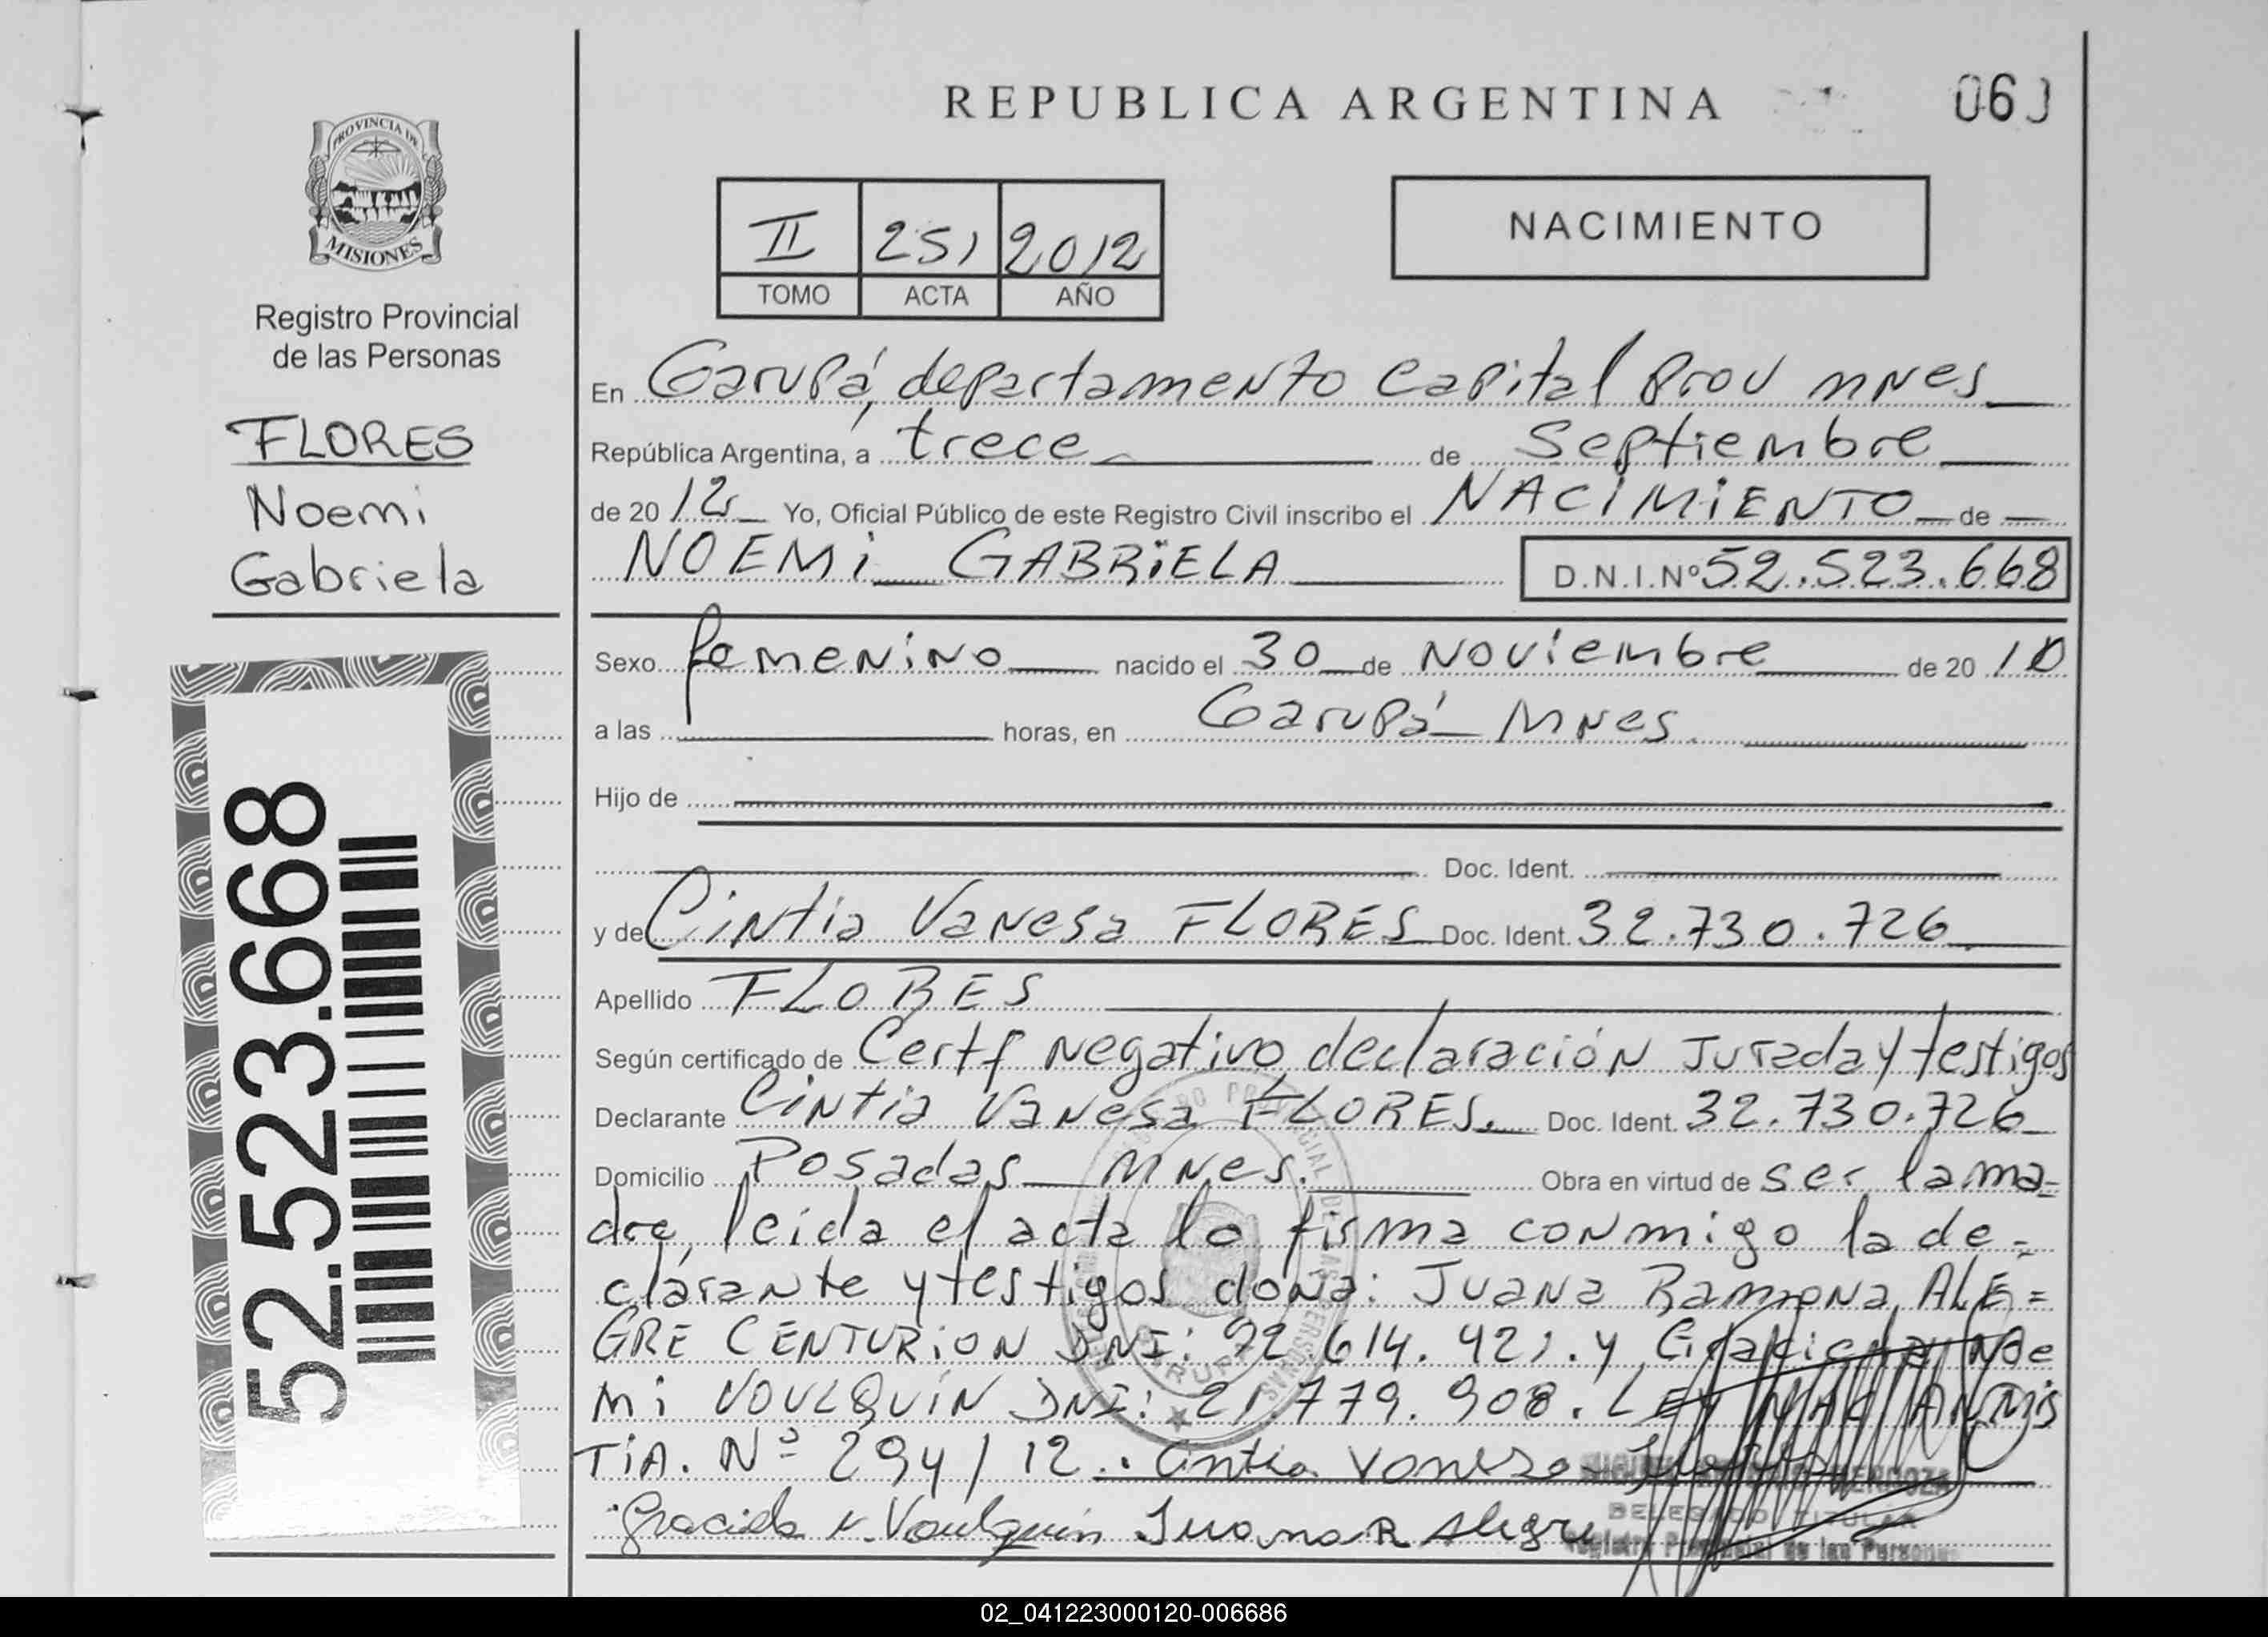 REPUBLICA ARGENTINA
06
PROVINCIA DE
MISIONES
Registro Provincial
de las Personas
FLORES
Noemi
Gabriela
52.523.668
II 251 2012
TOMO ACTA AÑO
NACIMIENTO
En Garupá, departamento Capital Prov mnes
República Argentina, a trece de Septiembre
de 20 12 Yo, Oficial Público de este Registro Civil inscribo el NACIMIENTO de
NOEMI GABRIELA D.N.I.Nº 52.523.668
Sexo femenino nacido el 30 de Noviembre de 20 10
a las horas, en Garupá Mnes.
Hijo de
Doc. Ident.
y de Cintia Vanesa FLORES Doc. Ident. 32.730.726
Apellido FLORES
Según certificado de Certf negativo, declaración Jurada y testigos
Declarante Cintia Vanesa FLORES. Doc. Ident. 32.730.726
Domicilio Posadas Mnes. Obra en virtud de ser la ma-
dre, leida el acta la firma conmigo la de-
clarante y testigos doña: Juana Ramona ALE=
GRE CENTURION DNI: 92 614. 421. y Graciela Noe
mi VOULQUIN DNI: 21.779.908. LEY NAC AMNIS
TIA. Nº 294/12.. Cintia Vanesa
Graciela N. Voulquin Juana R Alegre
DELEGADO TITULAR
Registro Provincial de las Personas
02_041223000120-006686